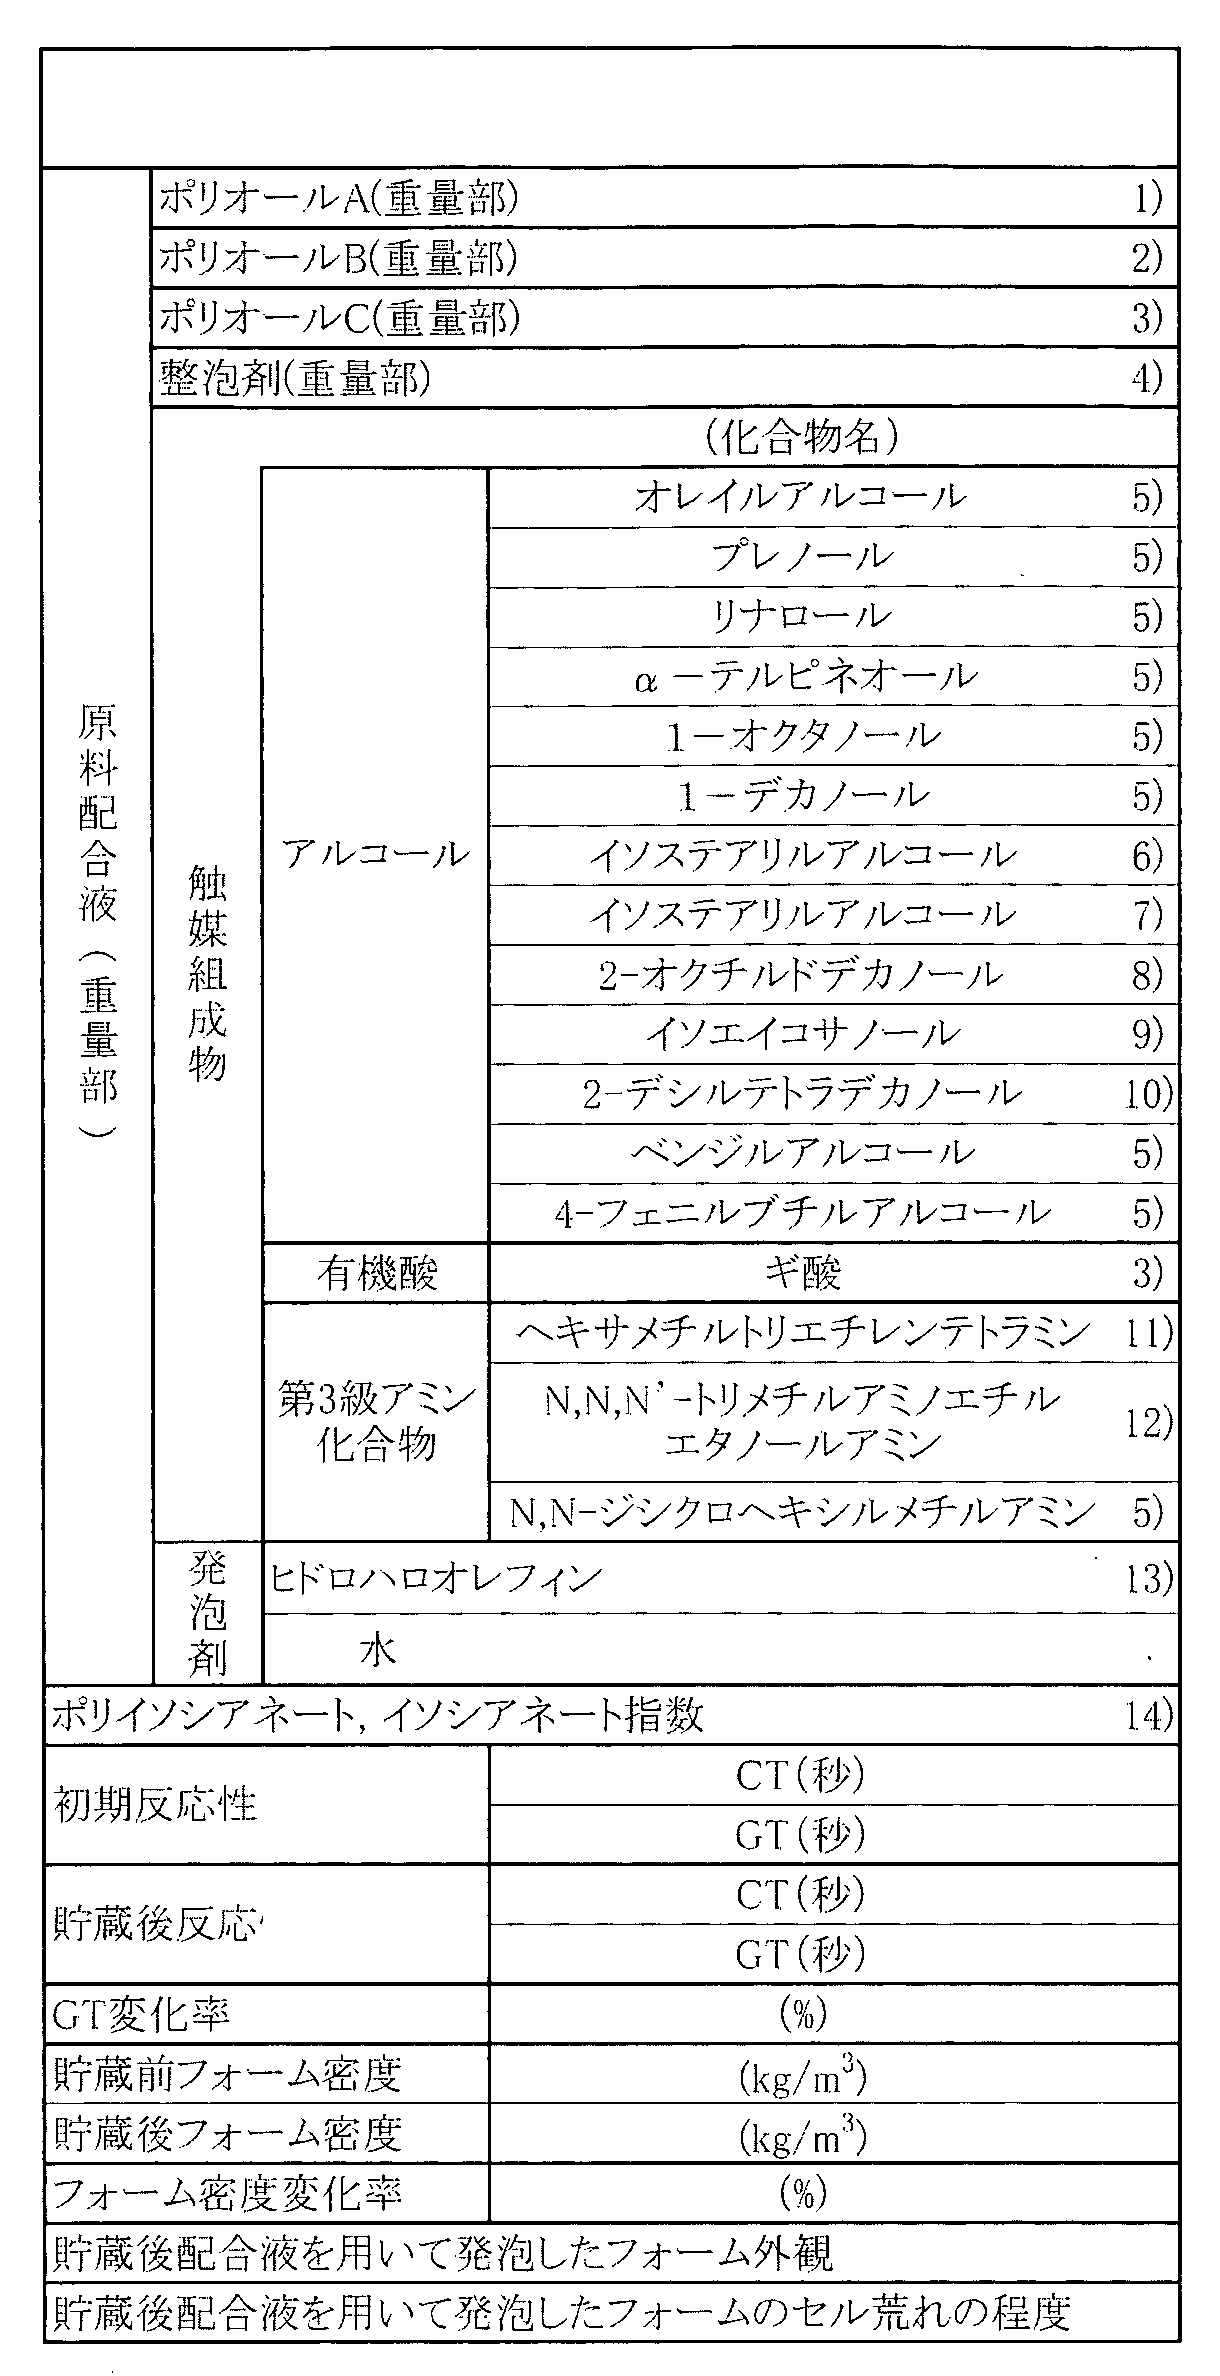 ポリオールA(重量部) 1)
ポリオールB(重量部) 2)
ポリオールC(重量部) 3)
整泡剤(重量部) 4)
(化合物名)
オレイルアルコール 5)
プレノール 5)
リナロール 5)
α－テルピネオール 5)
1－オクタノール 5)
1－デカノール 5)
アルコール
イソステアリルアルコール 6)
イソステアリルアルコール 7)
2-オクチルドデカノール 8)
イソエイコサノール 9)
2-デシルテトラデカノール 10)
ベンジルアルコール 5)
4-フェニルブチルアルコール 5)
原料配合液(重量部)
触媒組成物
有機酸 ギ酸 3)
第3級アミン
化合物
ヘキサメチルトリエチレンテトラミン 11)
N,N,N'-トリメチルアミノエチル
エタノールアミン 12)
N,N-ジシクロヘキシルメチルアミン 5)
発泡剤
ヒドロハロオレフィン 13)
水
ポリイソシアネート, イソシアネート指数 14)
初期反応性
CT(秒)
GT(秒)
貯蔵後反応
CT(秒)
GT(秒)
GT変化率 (%)
貯蔵前フォーム密度 (kg/m³)
貯蔵後フォーム密度 (kg/m³)
フォーム密度変化率 (%)
貯蔵後配合液を用いて発泡したフォーム外観
貯蔵後配合液を用いて発泡したフォームのセル荒れの程度